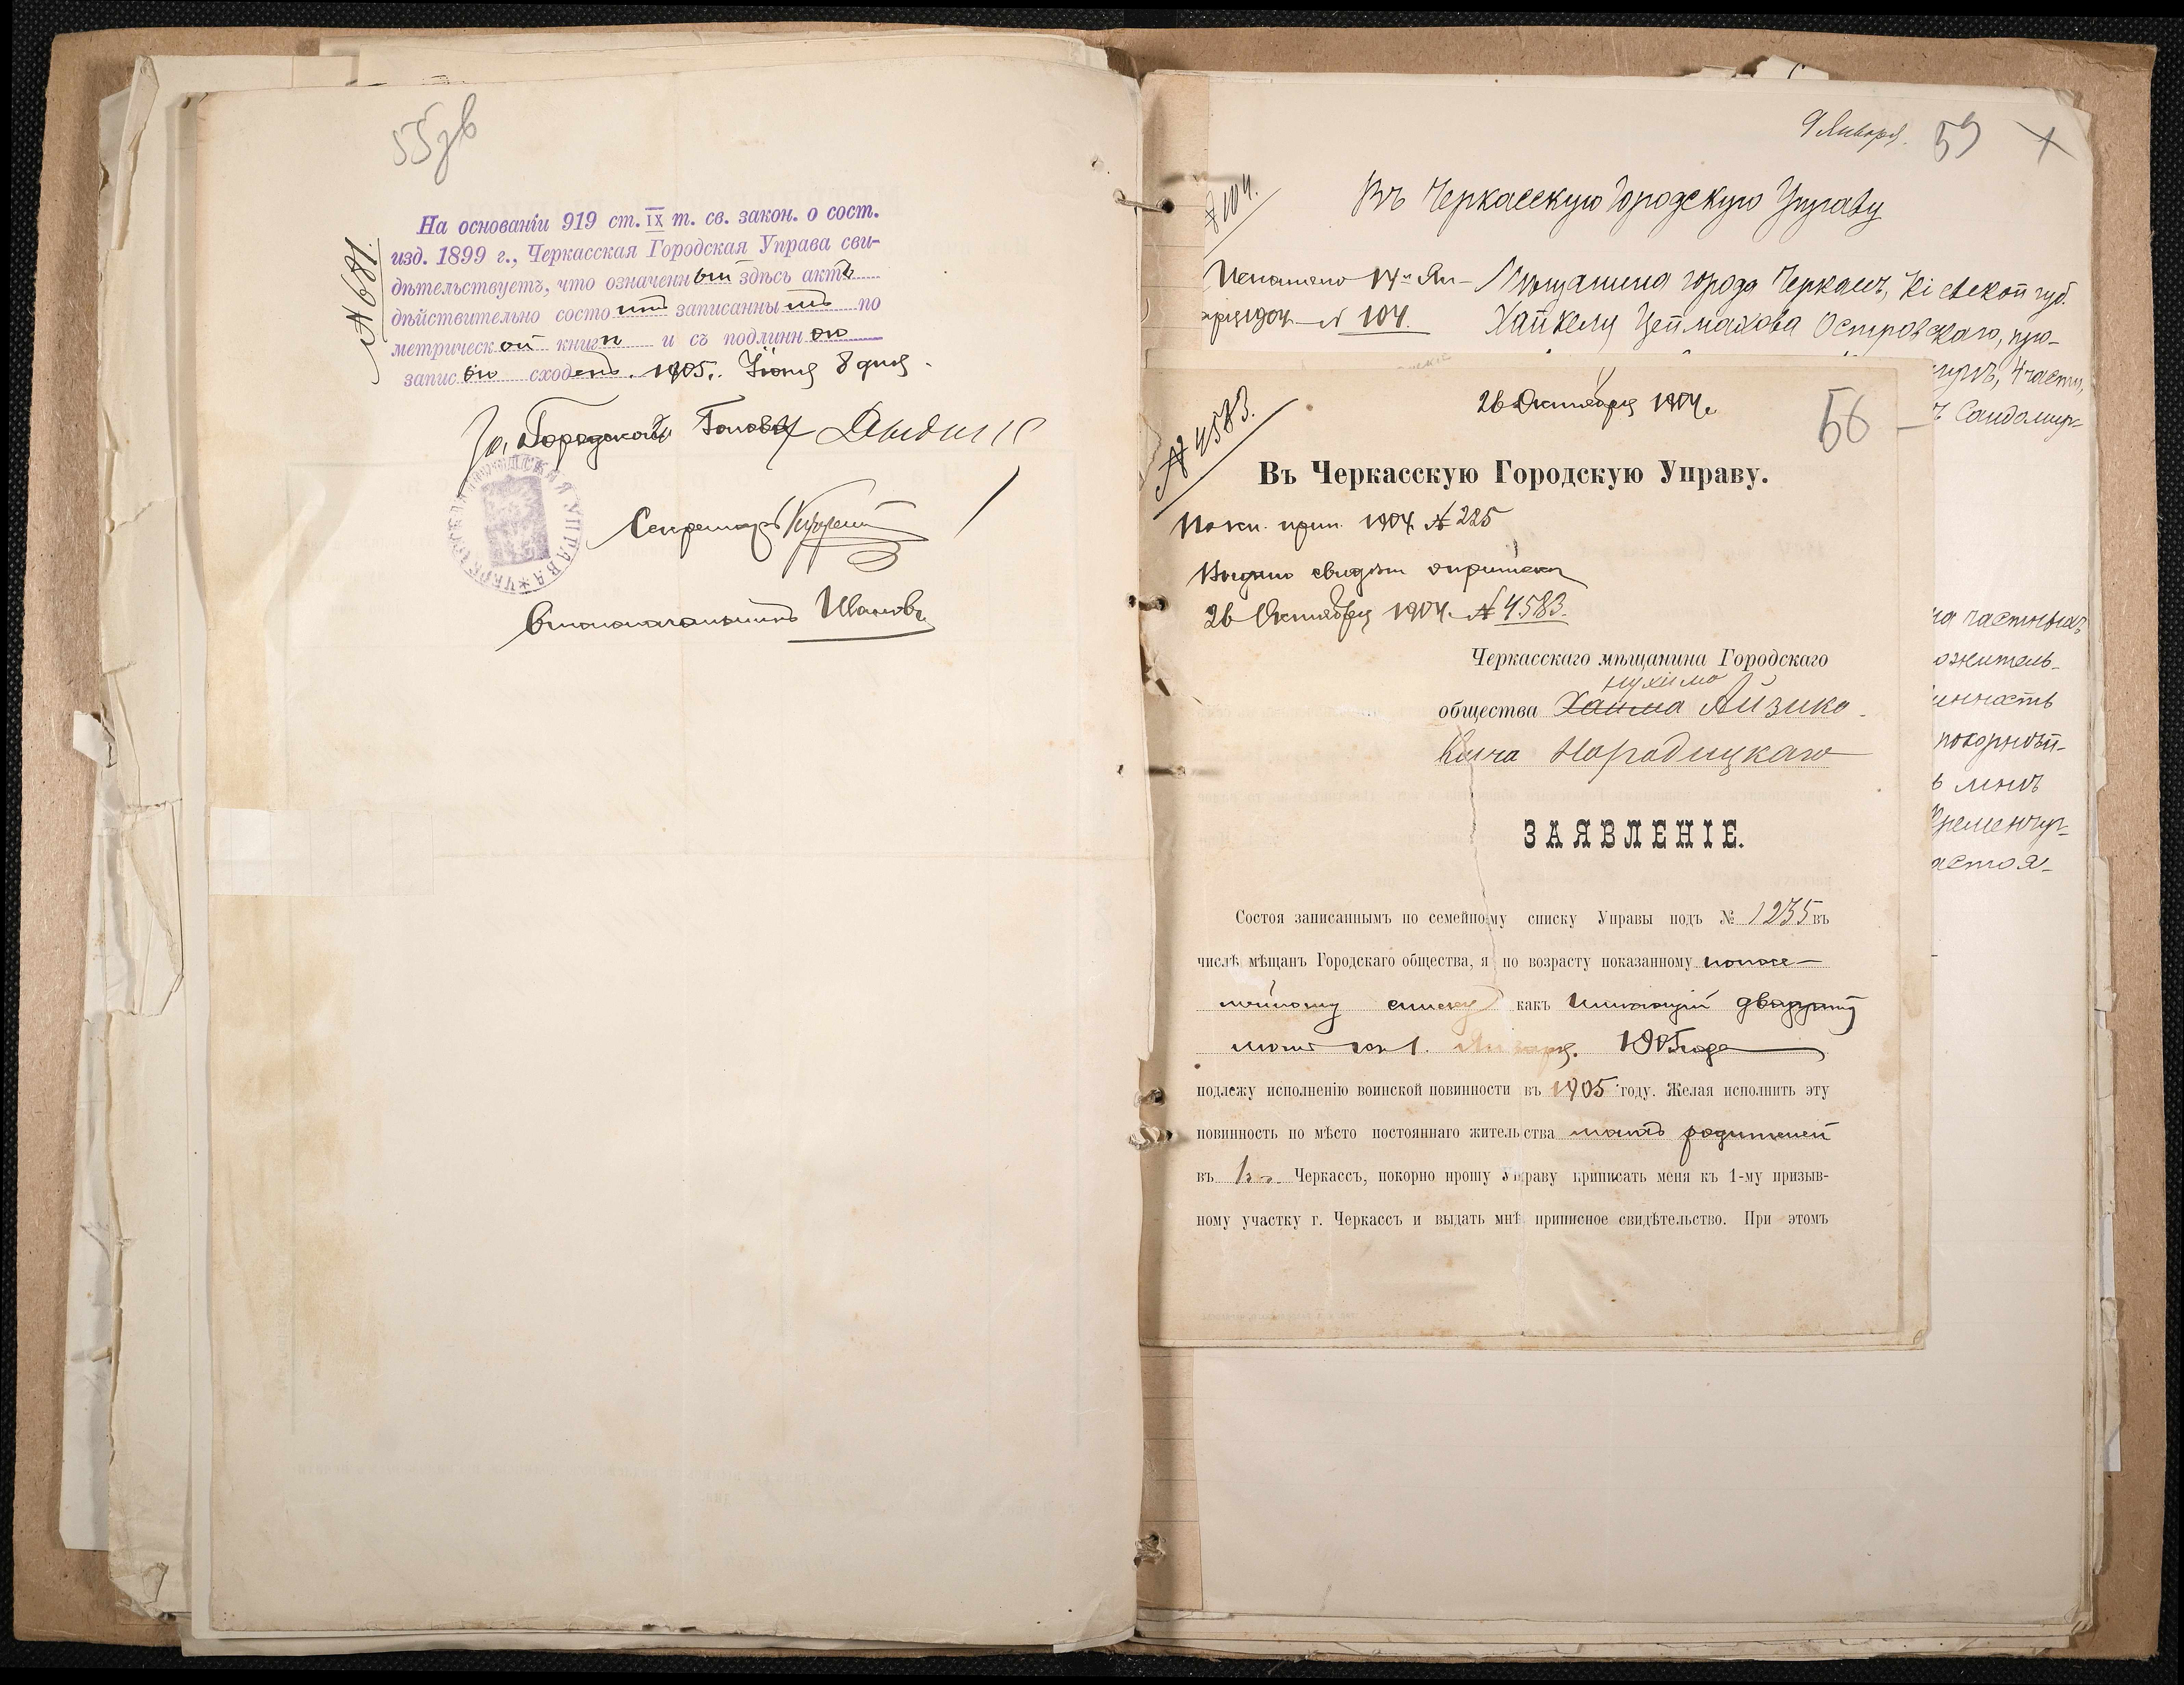 55зв
На основаніи 919 ст. IX т. св. закон. о сост.
изд. 1899 г., Черкасская Городская Управа сви-
дѣтельствуетъ, что означенный здѣсь актъ
дѣйствительно состоитъ записаннымъ по
метрической книги и съ подлинною
записью сходенъ. 1905 г. Іюня 8 дня.
№ 681.
За Городской Головы
Секретарь
ЧЕРКАССКАЯ ГОРОДСКАЯ УПРАВА
Ивановъ
9 Января. 59
№ 104.
Въ Черкасскую Городскую Управу
Исполнено 14го Ян-
варя 1904 № 104.
Мѣщанина города Черкасъ, Кіевской губ.
Хайкеля Цеймахова Островскаго, про-
4 части,
Сандомир-
на частныхъ
ожитель-
инность
покорнѣй-
ь мнѣ
Кременчуг-
астоя-
26 Октября 1904 г.
56
№ 4583.
Въ Черкасскую Городскую Управу.
По кн. прип. 1904 № 225
Выдано свидѣт о припискѣ
26 Октября 1904 № 4583.
Черкасскаго мѣщанина Городскаго
Нухима
общества Хаима Айзико-
вича Народицкаго
ЗАЯВЛЕНІЕ.
Состоя записаннымъ по семейному списку Управы подъ № 1235 въ
числѣ мѣщанъ Городскаго общества, я по возрасту показанному по посе-
мейному списку какъ имѣющій двадцать
лѣтъ на 1 Января 1905 года
подлежу исполненію воинской повинности въ 1905 году. Желая исполнить эту
повинность по мѣсто постояннаго жительства моихъ родителей
въ г. Черкассъ, покорно прошу Управу приписать меня къ 1-му призыв-
ному участку г. Черкассъ и выдать мнѣ приписное свидѣтельство. При этомъ